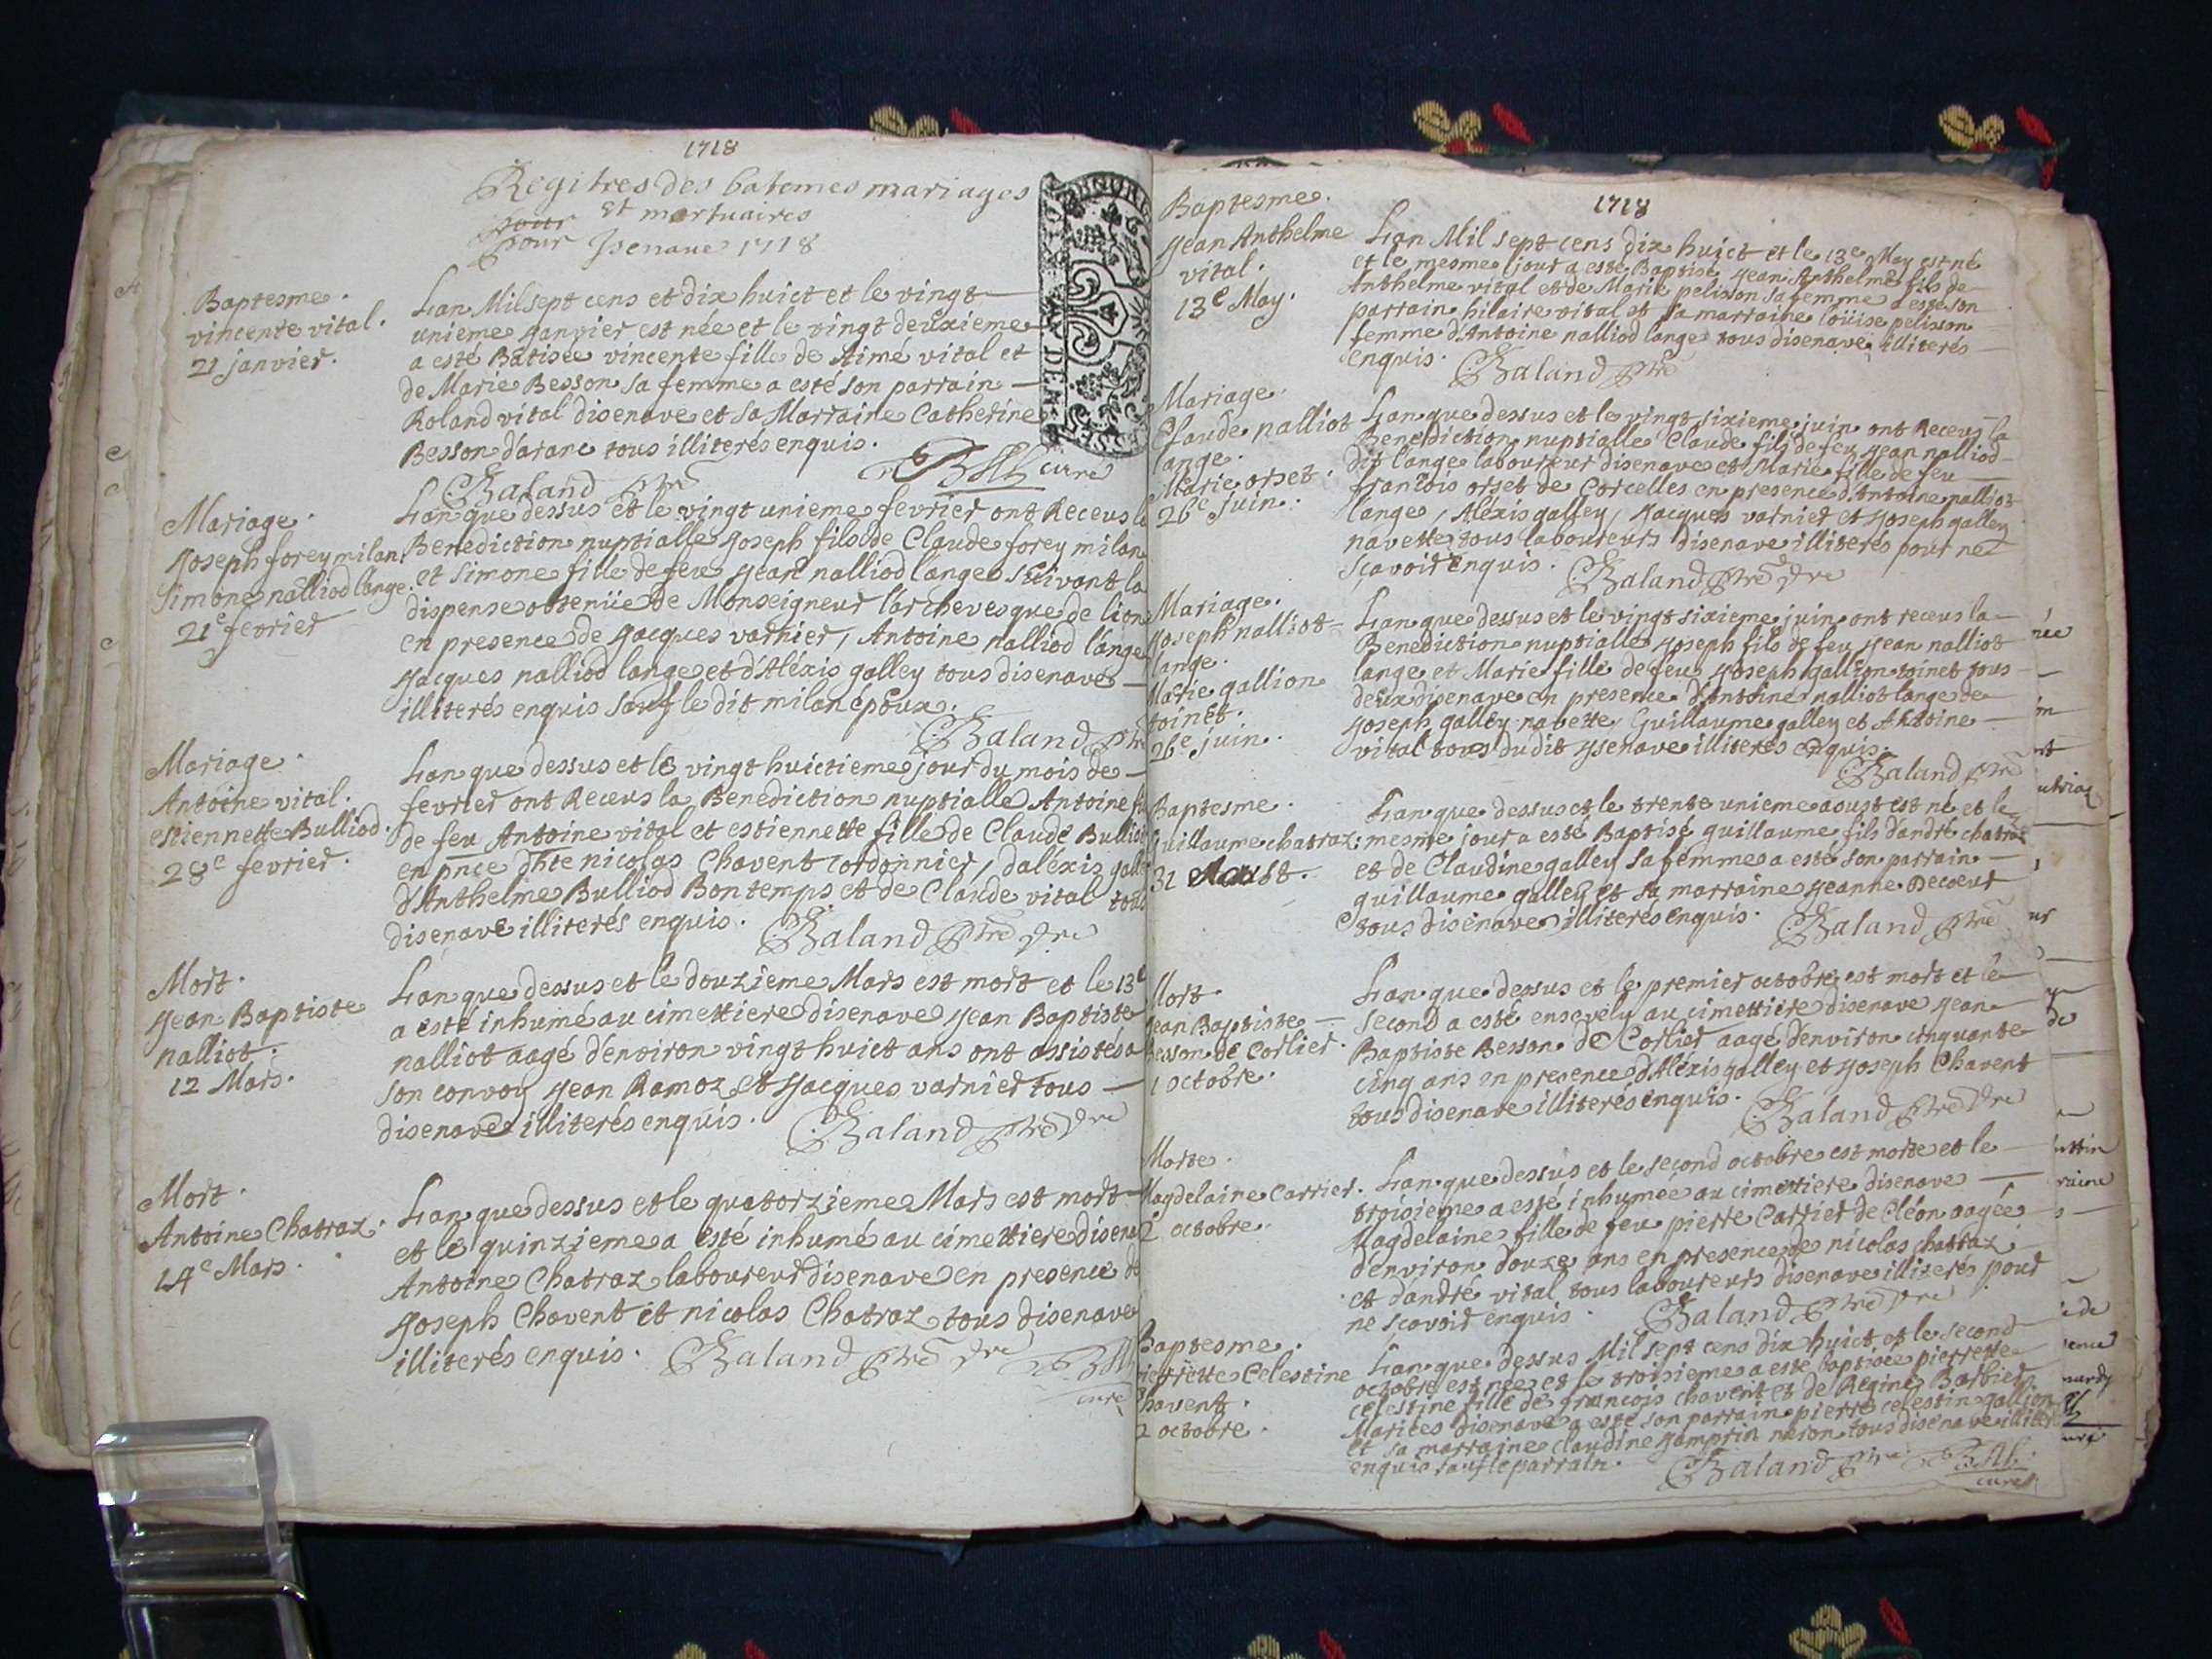 1718
Regitres des batemes mariages
et mortuaires
pour
pour Isenave 1718
Baptesme.
vincente vital.
21 janvier.
Lan Mil sept cens et dix huict et le vingt
unieme Janvier est née et le vingt deuxieme
a esté Batisée vincente fille de Aimé vital et
de Marie Besson sa femme a esté son parrain
Roland vital disenave et sa Marraine Catherine
Besson d'aranc tous illiterés enquis.
Baland ptre
curé
Mariage.
Joseph forey milan.
Simone nalliod lange.
21e fevrier
Lan que dessus et le vingt unieme fevrier ont Receus la
Benediction nuptialle Joseph fils de Claude forey milan
et Simone fille de feu Jean nalliod lange suivant la
dispense obtenüe de Monseigneur l'archevesque de lion
en presence de Jacques varnier, Antoine nalliod lange
Jacques nalliod lange et d'Aléxis galley tous disenave
illiterés enquis sauf le dit milan époux.
Baland ptre
Mariage.
Antoine vital.
estiennette Bulliod.
28e fevrier.
Lan que dessus et le vingt huictieme jour du mois de
fevrier ont Receus la Benediction nuptialle Antoine
de feu Antoine vital et estiennette fille de Claude Bulliod
en pnce nicolas Chavent cordonnier, daléxis
d'Anthelme Bulliod Bontemps et de Claude vital tous
disenave illiterés enquis.
Baland ptre vre
Mort.
Jean Baptiste
nalliot.
12 Mars.
Lan que dessus et le douzieme Mars est mort et le 13e
a esté inhumé au cimettiere disenave Jean Baptiste
nalliot aagé d'environ vingt huict ans ont assistés a
son convoy Jean Ramoz et Jacques varnier tous
disenave illiterés enquis.
Baland ptre vre
Mort.
Antoine Chatraz.
14e Mars.
Lan que dessus et le quatorzieme Mars est mort
et le quinzieme a esté inhumé au cimettiere
Antoine Chatraz laboureur disenave en presence de
Joseph Chavent et nicolas Chatraz tous disenave
illiterés enquis.
Baland ptre vre
curé
1718
Baptesme.
Jean Anthelme
vital.
13e May.
Lan Mil sept cens dix huict et le 13e May est né
et le mesme jour a esté Baptisé Jean Anthelme fils de
Anthelme vital et de Marie pelisson sa femme a esté son
parrain hilaire vital et sa marraine loüise pelisson
femme d'Antoine nalliod lange tous disenave illiterés
enquis.
Baland ptre
Mariage.
Claude nalliot
lange.
Marie orset.
26e juin.
Lan que dessus et le vingt sixieme juin ont Receus la
Benediction nuptialle Claude fils de feu Jean nalliod
dit lange laboureur disenave et Marie fille de feu
françois orset de Corcelles en presence d'Antoine nalliot
lange, Aléxis galley, Jacques varnier et Joseph galley
navette tous laboureurs disenave illiterés pour ne
scavoir enquis.
Baland ptre vre
Mariage.
Joseph nalliot
lange.
Marie gallion
toinet.
26e juin.
Lan que dessus et le vingt sixieme juin ont receus la
Benediction nuptialle Joseph fils de feu Jean nalliot
lange et Marie fille de feu Joseph gallion toinet tous
deux disenave en presence d'Antoine nalliot lange de
Joseph galley navette Guillaume galley et Antoine
vital tous du dit Isenave illiterés enquis.
Baland ptre
Baptesme.
guillaume chatraz.
31 Aoust.
Lan que dessus et le trente unieme aoust est né et le
mesme jour a esté Baptisé guillaume fils d'andré chatraz
et de Claudine galley sa femme a esté son parrain
guillaume galley et sa marraine Jeanne Decoeur
tous disenave illiterés enquis.
Baland ptre
Mort.
Jean Baptiste
Besson de Corlier.
1 octobre.
Lan que dessus et le premier octobre est mort et le
second a esté ensevely au cimettiere disenave Jean
Baptiste Besson de Corlier aagé d'environ cinquante
cinq ans en presence d'Aléxis galley et Joseph Chavent
tous disenave illiterés enquis.
Baland ptre vre
Morte.
Magdelaine Carrier.
2 octobre.
Lan que dessus et le second octobre est morte et le
troisieme a esté inhumée au cimettiere disenave
Magdelaine fille de feu pierre Carrier de Cléon aagée
d'environ douze ans en presence de nicolas chatraz
et d'andré vital tous laboureurs disenave illiterés pour
ne scavoir enquis.
Baland ptre vre
Baptesme.
pierrette Celestine
Chavent.
2 octobre.
Lan que dessus Mil sept cens dix huict et le second
octobre est née et le troisieme a esté baptisée pierrette
celestine fille de francois chavent et de Regine Barbier
Mariées disenave a esté son parrain pierre celestin gallion
et sa marraine claudine Jamprin tous disenave
enquis sauf le parrain.
Baland ptre
curé